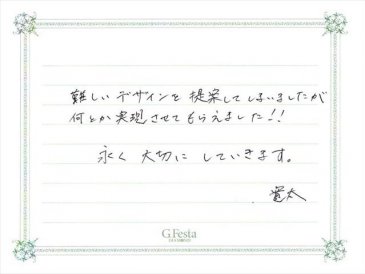 難しいデザインを提案してしまいましたが
何とか実現させてもらえました!!
永く大切にしていきます。
G.Festa
DIAMOND